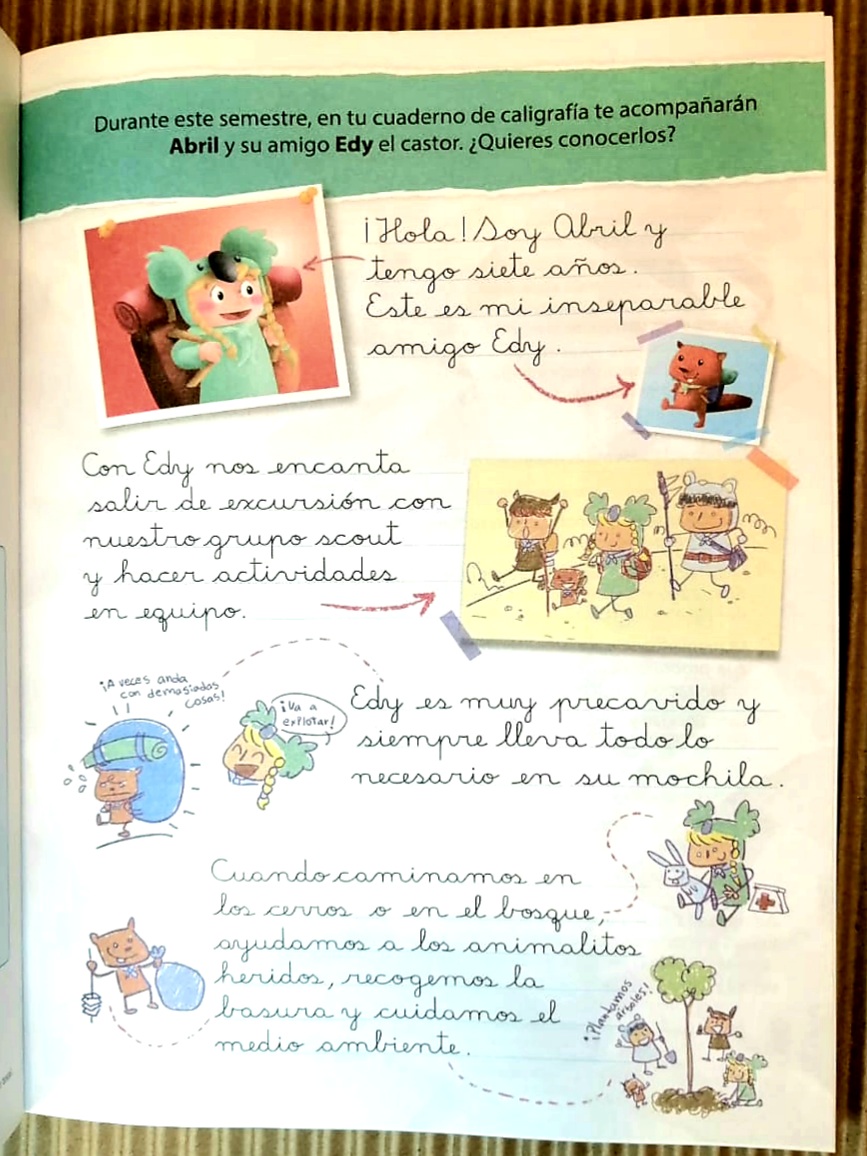 Durante este semestre, en tu cuaderno de caligrafía te acompañarán
Abril y su amigo Edy el castor. ¿Quieres conocerlos?
¡Hola! Soy Abril y
tengo siete años.
Este es mi inseparable
amigo Edy.
Con Edy nos encanta
salir de excursión con
nuestro grupo scout
y hacer actividades
en equipo.
¡A veces anda
con demasiadas
cosas!
¡Va a
explotar!
Edy es muy precavido y
siempre lleva todo lo
necesario en su mochila.
Cuando caminamos en
los cerros o en el bosque,
ayudamos a los animalitos
heridos, recogemos la
basura y cuidamos el
medio ambiente.
¡Plantamos
árboles!